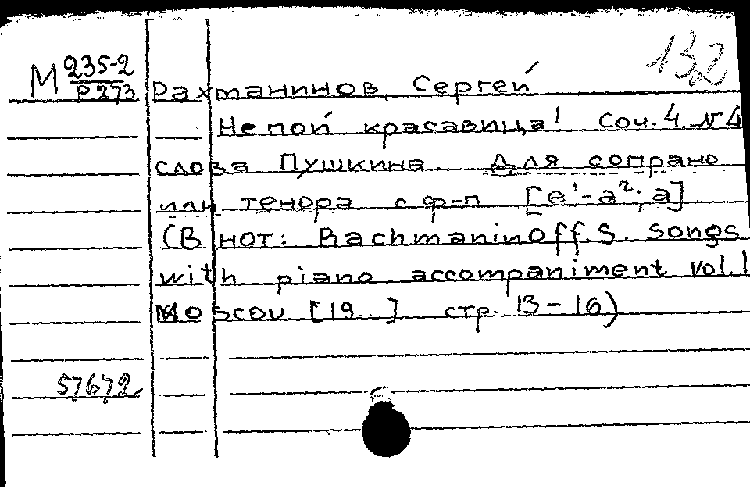 132
М 235-2
Р 273
Рахманинов, Сергей
Не пой красавица! Соч. 4 N4
слова Пушкина. Для сопрано
или тенора с ф-п [e'-a²; a]
(В нот: Rachmaninoff. S. Songs
with piano accompaniment vol. 1
Moscou [19..] стр. 13-16)
57672